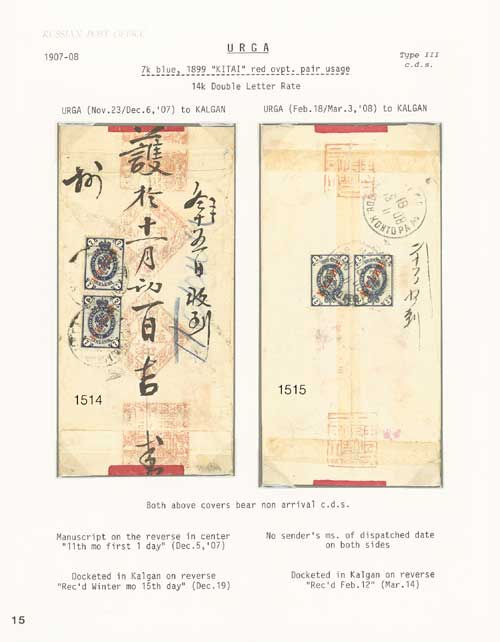 RUSSIAN POST OFFICE
URGA
1907-08
Type III
c.d.s.
7k blue, 1899 "KITAI" red ovpt. pair usage
14k Double Letter Rate
URGA (Nov.23/Dec.6,'07) to KALGAN
URGA (Feb.18/Mar.3,'08) to KALGAN
護於十一月初一日吉
日收到
КОНТОРА
1514
1515
Both above covers bear non arrival c.d.s.
Manuscript on the reverse in center
"11th mo first 1 day" (Dec.5,'07)
No sender's ms. of dispatched date
on both sides
Docketed in Kalgan on reverse
"Rec'd Winter mo 15th day" (Dec.19)
Docketed in Kalgan on reverse
"Rec'd Feb.12" (Mar.14)
15